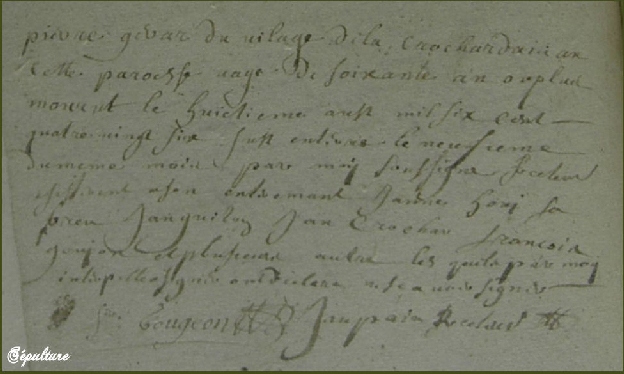 pierre gevar du vilage de la Crochardaie en
cette paroesse aage de soixante an ou plus
mourut le huictieme aust mil six cent
quatre vingt six fust enterree le neufieme
du meme mois par moy soussigne Recteur
assisterent a son enterrement
Jan Crochar Francois
Goujon et plusieurs autre les quels par moy
interpelle signer ont declare ne scavoir signer
Gougeon Jan Recteur
Sépulture